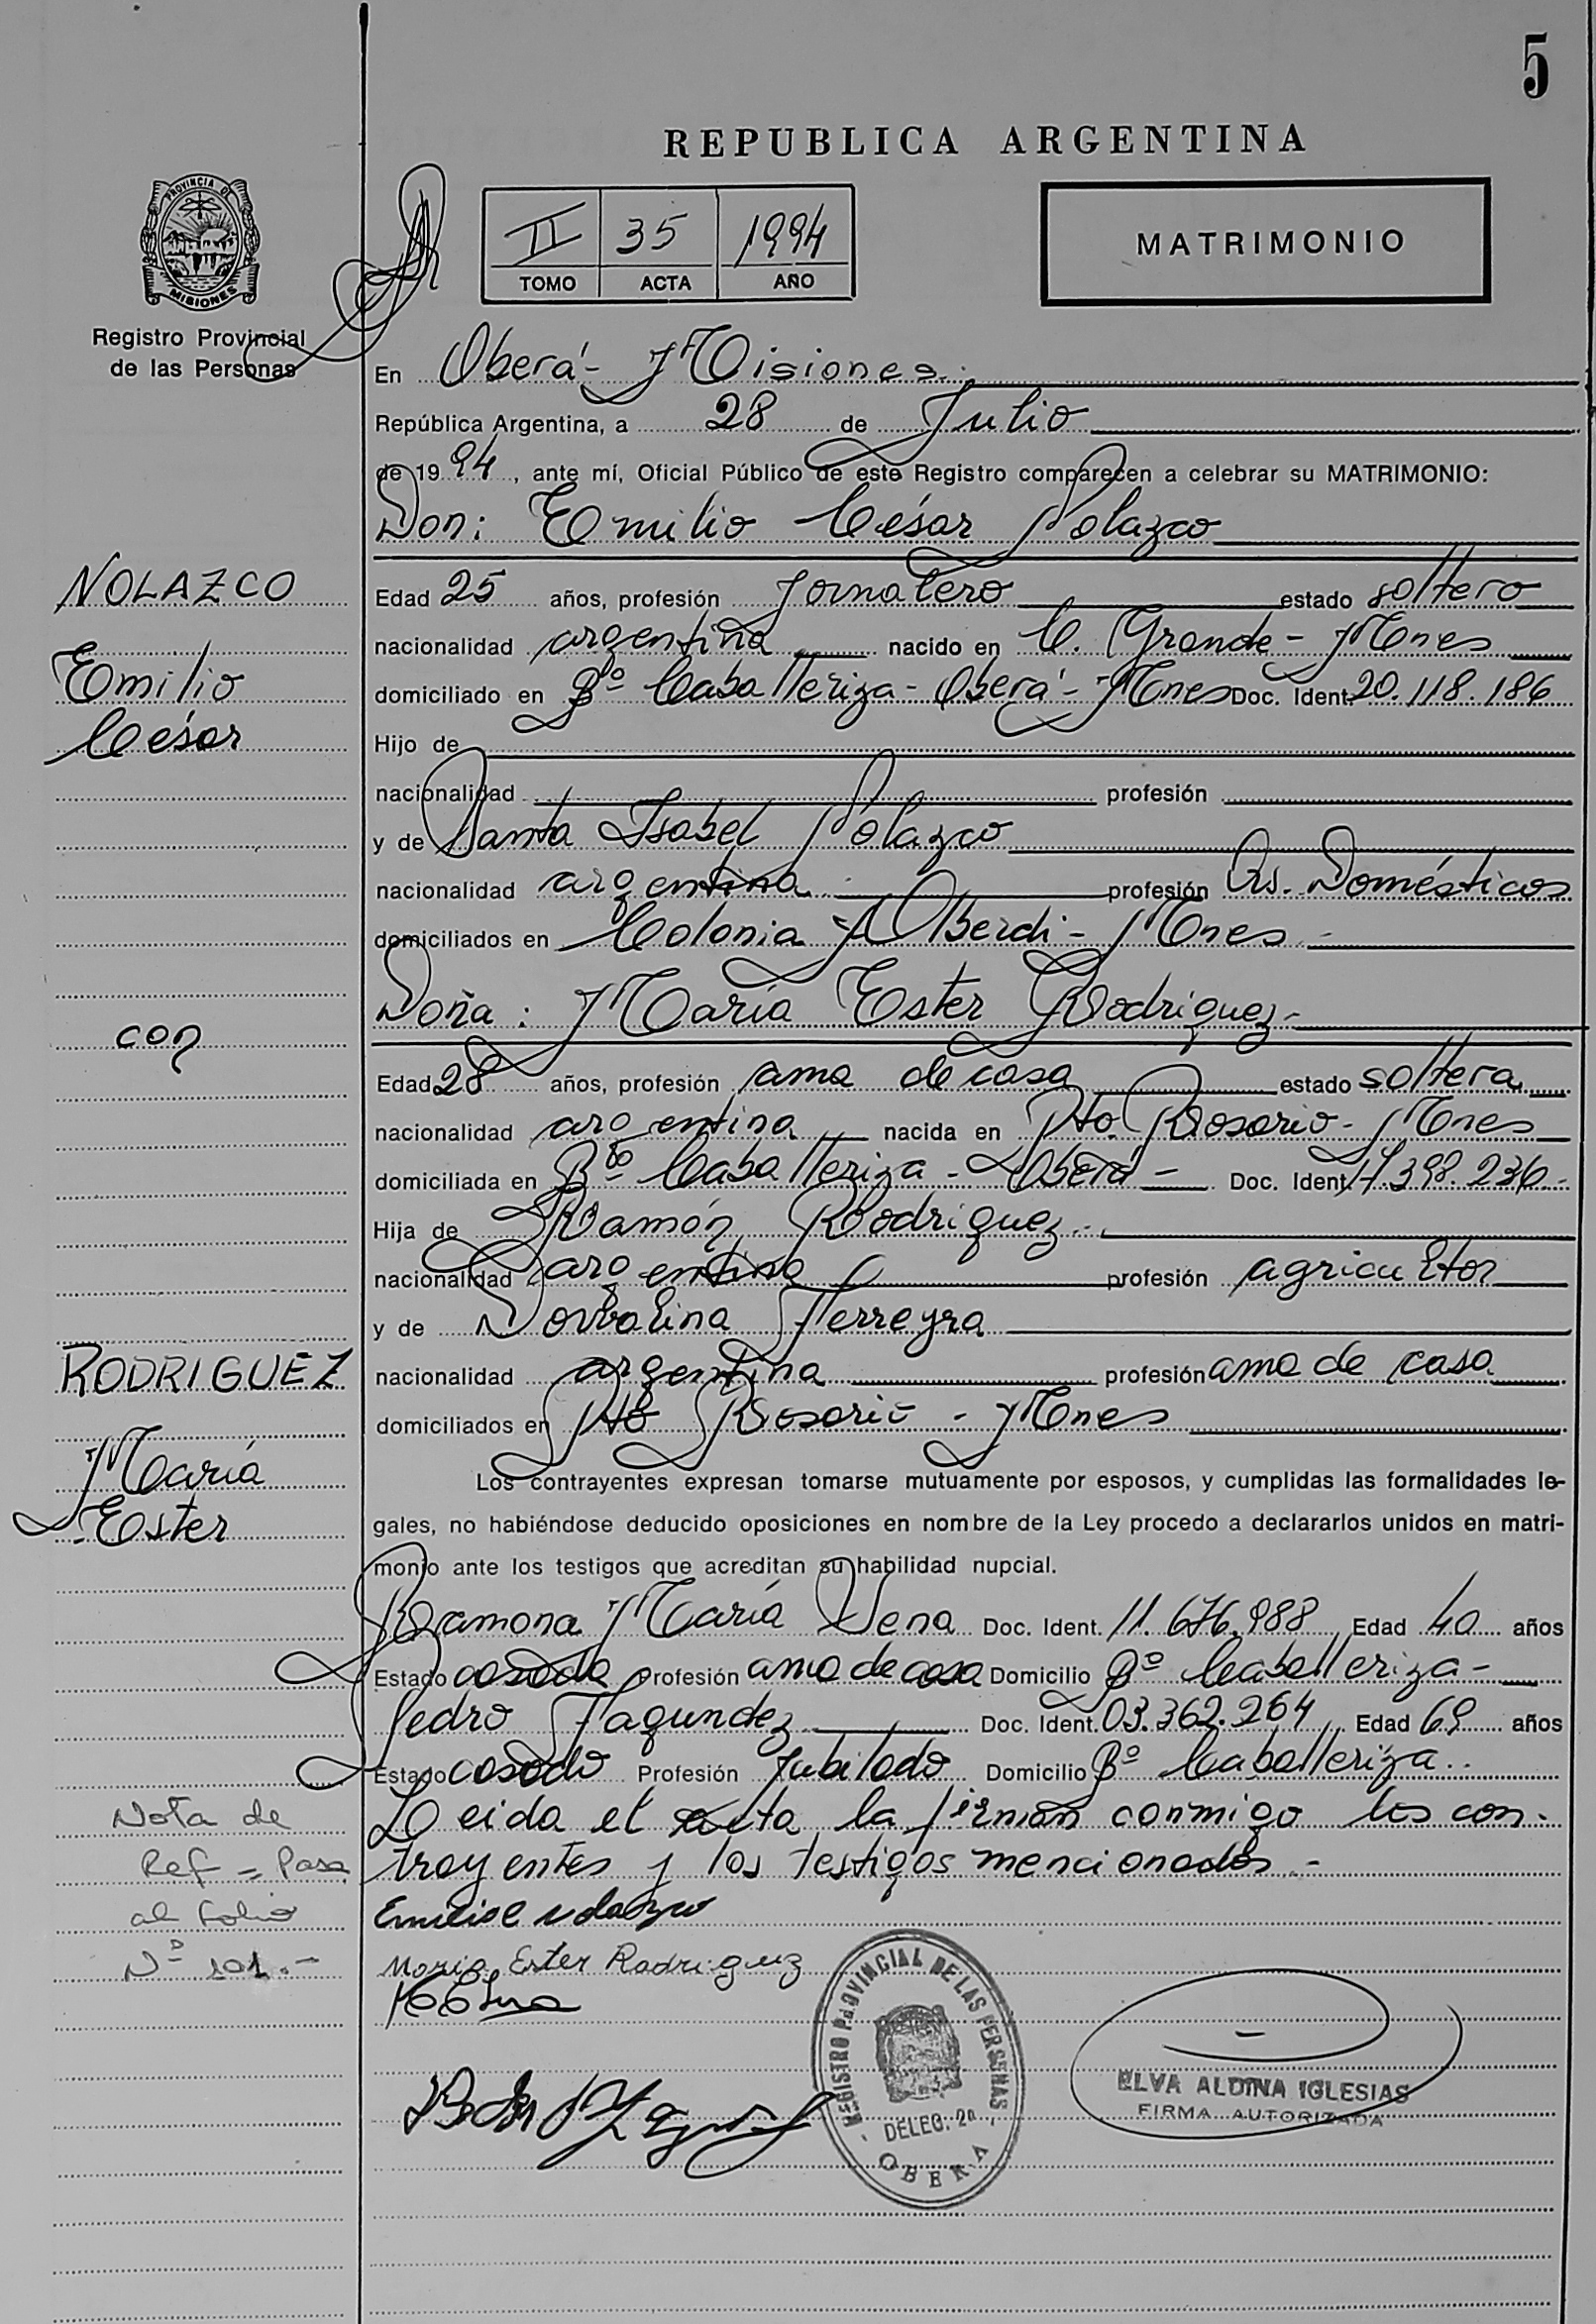 5
REPUBLICA ARGENTINA
PROVINCIA DE
MISIONES
Registro Provincial
de las Personas
II 35 1994
TOMO ACTA AÑO
MATRIMONIO
En Oberá - Misiones.
República Argentina, a 28 de Julio
de 1994, ante mí, Oficial Público de este Registro comparecen a celebrar su MATRIMONIO:
Don: Emilio César Nolazco
NOLAZCO
Edad 25 años, profesión Jornalero estado soltero
nacionalidad argentina nacido en C. Grande - Mnes
Emilio
domiciliado en Bº Caballeriza - Oberá - Mnes Doc. Ident. 20.118.186
César
Hijo de
nacionalidad profesión
y de Santa Isabel Nolazco
nacionalidad argentina profesión Qs. Domésticos
domiciliados en Colonia Alberdi - Mnes.
Doña: María Ester Rodriguez
con
Edad 28 años, profesión ama de casa estado soltera
nacionalidad argentina nacida en Pto. Rosario - Mnes
domiciliada en Bº Caballeriza - Oberá - Doc. Ident. 17.398.236.-
Hija de Ramón Rodriguez
nacionalidad argentina profesión agricultor
y de Dorvalina Ferreyra
RODRIGUEZ
nacionalidad argentina profesión ama de casa
domiciliados en Pto Rosario - Mnes
María
Los contrayentes expresan tomarse mutuamente por esposos, y cumplidas las formalidades le-
Ester
gales, no habiéndose deducido oposiciones en nombre de la Ley procedo a declararlos unidos en matri-
monio ante los testigos que acreditan su habilidad nupcial.
Ramona María Vena Doc. Ident. 11.676.988 Edad 40 años
Estado casada Profesión ama de casa Domicilio Bº Caballeriza -
Pedro Fagundez Doc. Ident. 03.362.264 Edad 69 años
Estado casado Profesión Jubilado Domicilio Bº Caballeriza..
Leida el acta la firman conmigo los con-
trayentes y los testigos mencionados.-
Nota de
Ref = Pasa
al folio
Nº 101.-
Maria Ester Rodriguez
REGISTRO PROVINCIAL DE LAS PERSONAS
DELEG. 2ª
OBERA
ELVA ALDINA IGLESIAS
FIRMA AUTORIZADA